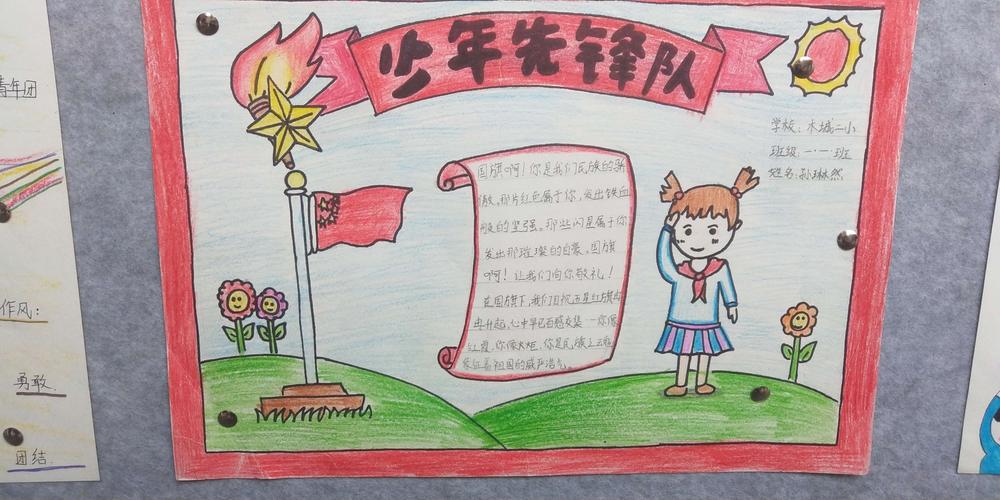 青年团
作风:
勇敢
团结
少年先锋队
学校: 木城二小
班级: 一·一班
姓名: 孙琳然
国旗啊!你是我们民族的骄
傲,那片红色属于你,发出铁血
般的坚强。那些闪星属于你
发出那璀璨的自豪。国旗
啊!让我们向你敬礼!
在国旗下,我们目视五星红旗冉
冉升起,心中早已百感交集一一你像
红霞,你像火炬,你是民族之魂
象征着祖国的威严浩气。